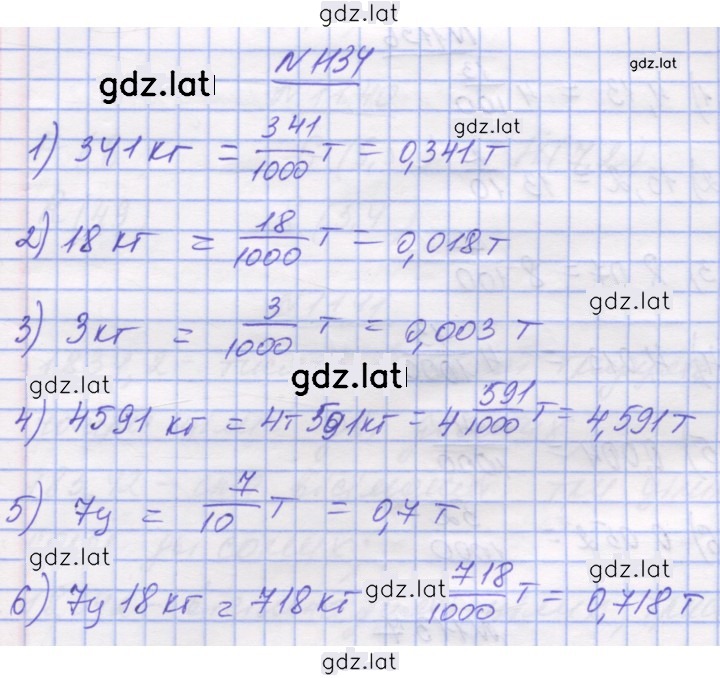 gdz.lat
N 1134
gdz.lat gdz.lat
gdz.lat
1) 341 кг = 341/1000 т = 0,341 т
2) 18 кг = 18/1000 т = 0,018 т
gdz.lat
3) 3 кг = 3/1000 т = 0,003 т
gdz.lat gdz.lat
4) 4591 кг = 4т 591кг = 4 591/1000 т = 4,591 т
5) 7ц = 7/10 т = 0,7 т
gdz.lat gdz.lat gdz.lat
6) 7ц 18 кг = 718 кг 718/1000 т = 0,718 т
gdz.lat